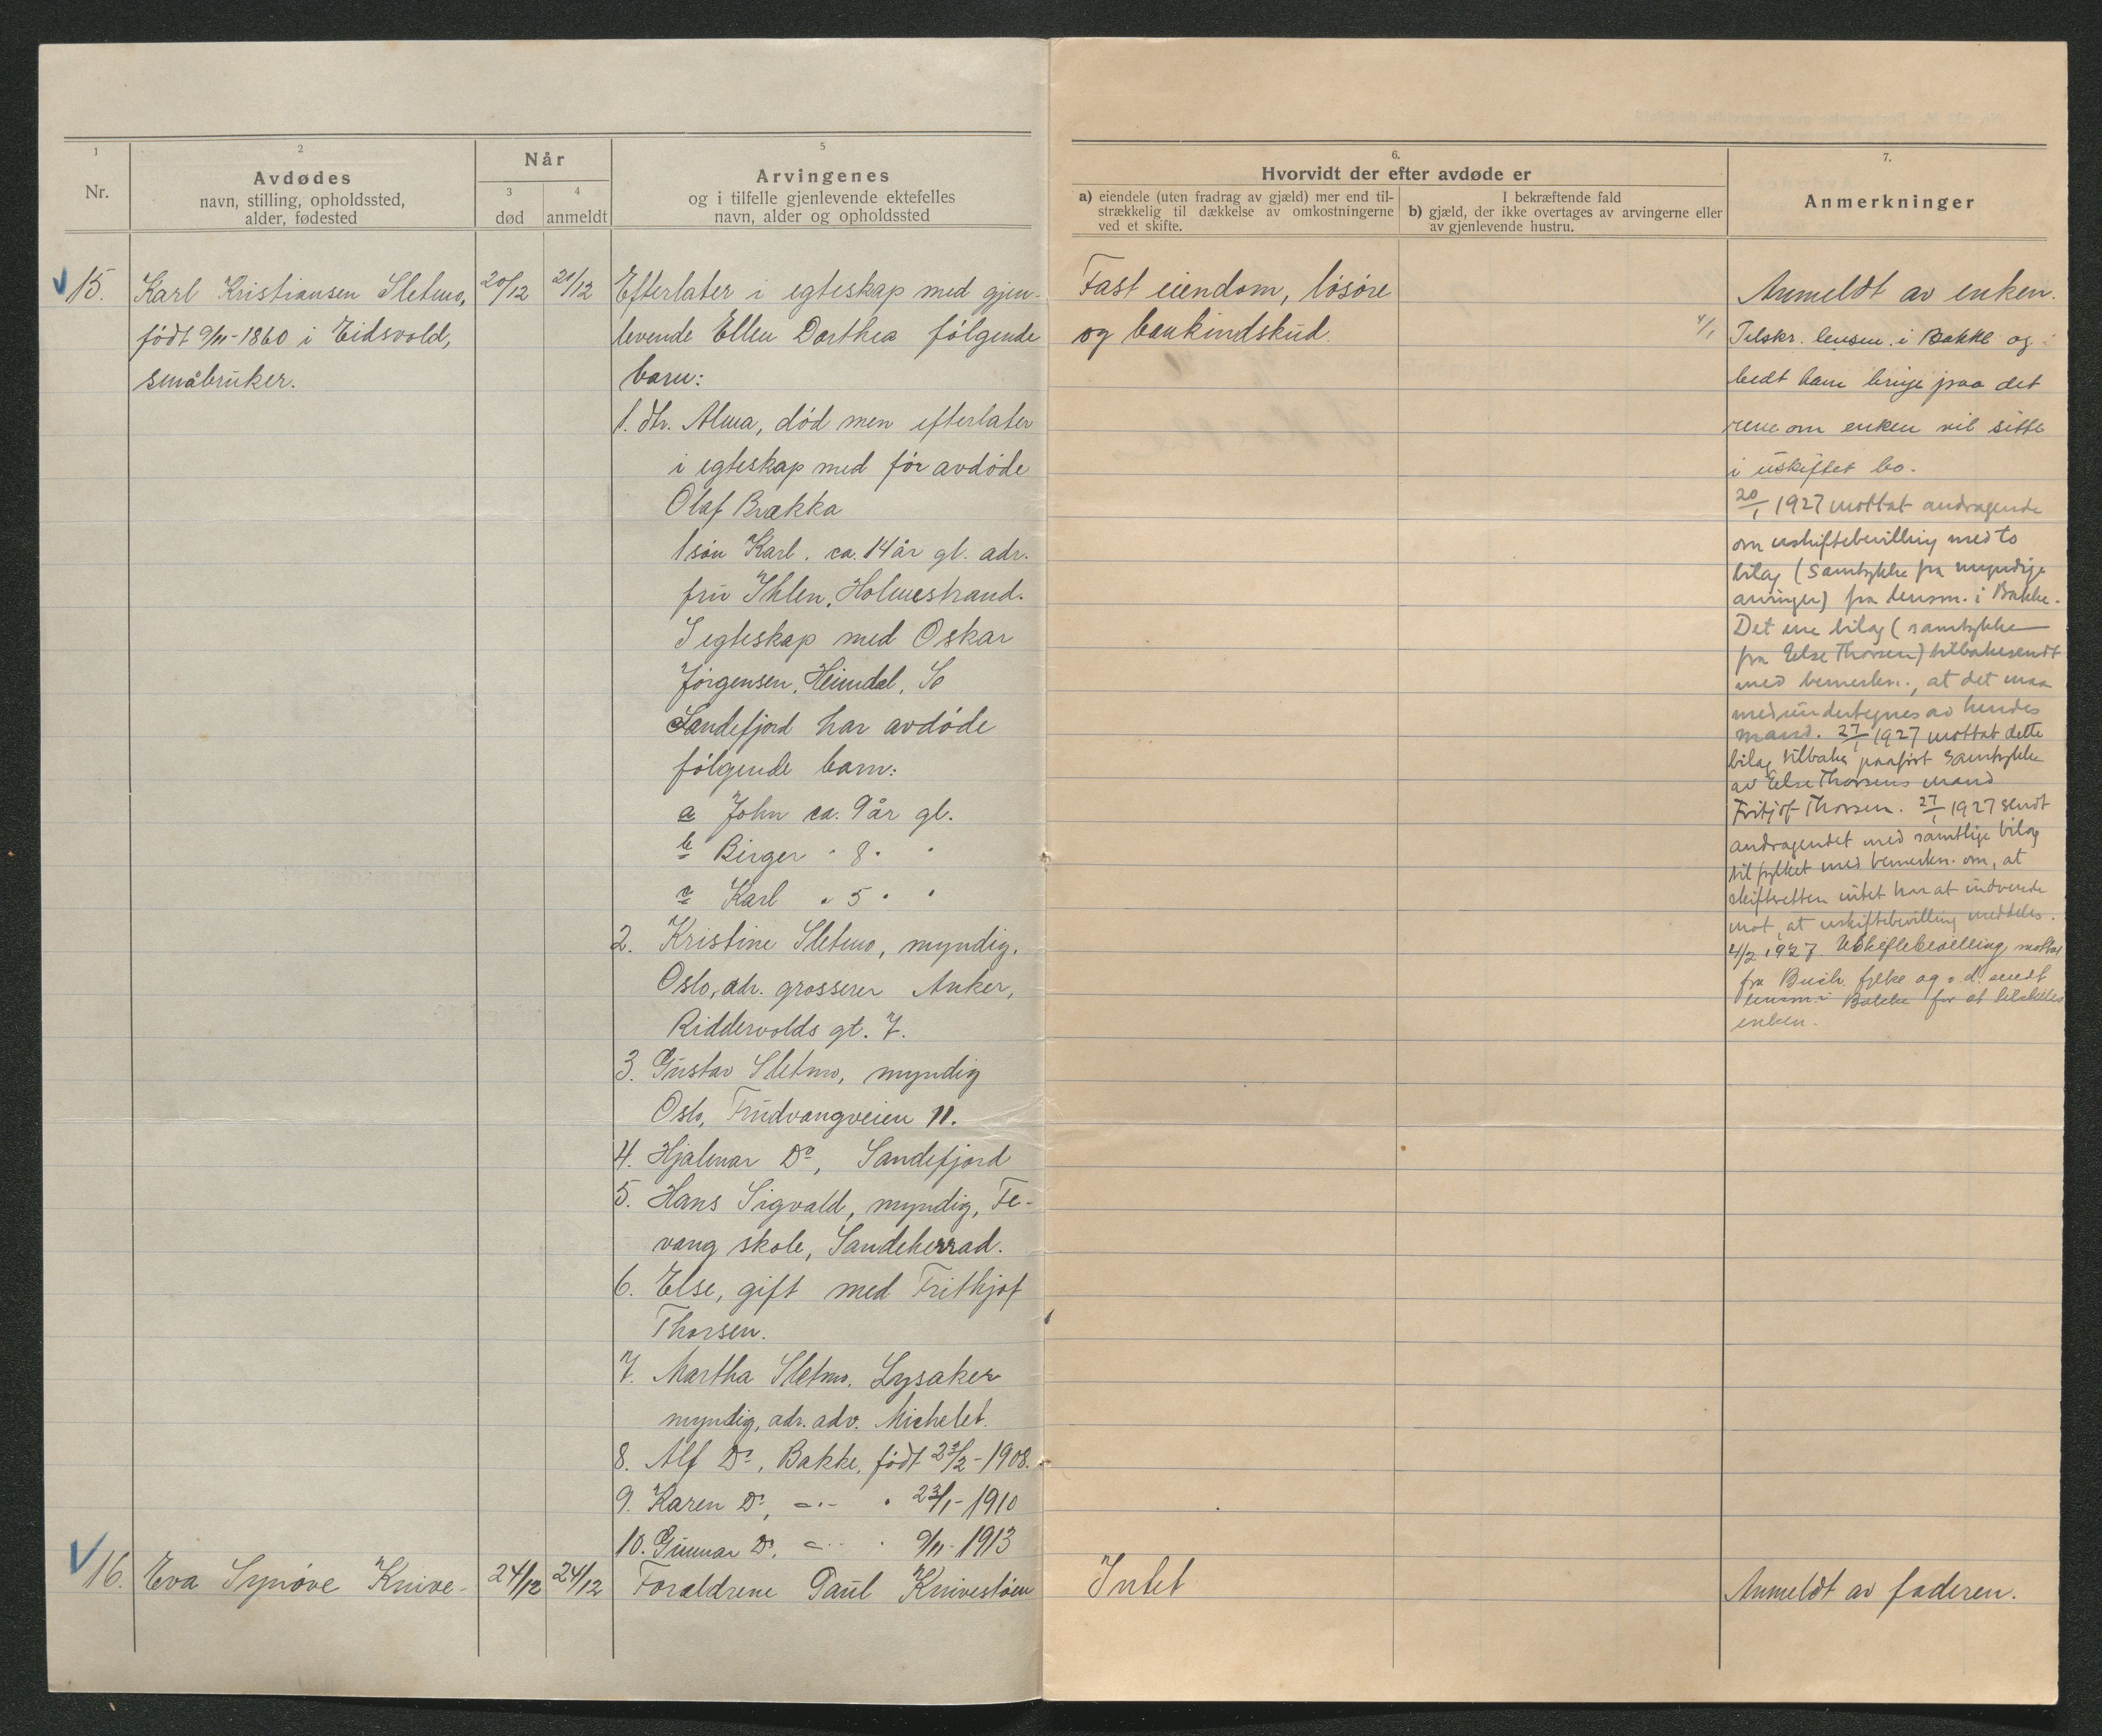 1
Nr.
2
Avdødes
navn, stilling, opholdssted,
alder, fødested
Når
3
død
4
anmeldt
5
Arvingenes
og i tilfelle gjenlevende ektefelles
navn, alder og opholdssted
6.
Hvorvidt der efter avdøde er
a) eiendele (uten fradrag av gjæld) mer end til-
strækkelig til dækkelse av omkostningerne
ved et skifte.
I bekræftende fald
b) gjæld, der ikke overtages av arvingerne eller
av gjenlevende hustru.
7.
Anmerkninger
15.
Karl Kristiansen Sletmo,
født 9/11-1860 i Eidsvold,
småbruker.
20/12
21/12
Efterlater i egteskap med gjen-
levende Ellen Dorthea følgende
barn:
1. dtr. Alma, død men efterlater
i egteskap med før avdøde
Olaf Brækka
1 søn Karl, ca. 14 år gl. adr.
fru Ihlen, Holmestrand.
I egteskap med Oskar
Jørgensen, Heimdal,
Sandefjord har avdøde
følgende barn:
a John ca. 9 år gl.
b Birger " 8 " "
c Karl " 5 " "
2. Kristine Sletmo, myndig,
Oslo, adr. grosserer Anker,
Riddervolds gt. 7.
3. Gustav Sletmo, myndig
Oslo, Trudvangveien 11.
4. Hjalmar Do, Sandefjord
5. Hans Sigvald, myndig, Fe-
vang skole, Sandeherrad.
6. Else, gift med Frithjof
Thorsen.
7. Martha Sletmo, Lysaker
myndig, adr. adv. Michelet.
8. Alf Do, Bakke, født 23/2-1908.
9. Karen Do, -"- " 23/1-1910
10. Gunnar Do, -"- " 9/11-1913
Fast eiendom, løsøre
og bankindskud.
Anmeldt av enken.
4/1 Tilskr. lensm. i Bakke og
bedt ham bringe paa det
rene om enken vil sitte
i uskiftet bo.
20/1 1927 mottat andragende
om uskiftebevilling med to
bilag (samtykke fra myndige
arvinger) fra lensm. i Bakke.
Det ene bilag (samtykke
fra Else Thorsen) tilbakesendt
med bemerkn., at det maa
medundertegnes av hendes
mand. 27/1 1927 mottat dette
bilag tilbake paaført samtykke
av Else Thorsens mand
Fritjof Thorsen. 27/1 1927 sendt
andragendet med samtlige bilag
til fylket med bemerkn. om, at
skifteretten intet har at indvende
mot, at uskiftebevilling meddeles.
4/2 1927. Uskiftebevilling mottat
fra Busk. fylke og s.d. sendt
lensm. i Bakke for at tilstilles
enken.
16.
Eva Synøve Knive-
24/12
24/12
Forældrene Paul Knivestøen
Intet
Anmeldt av faderen.